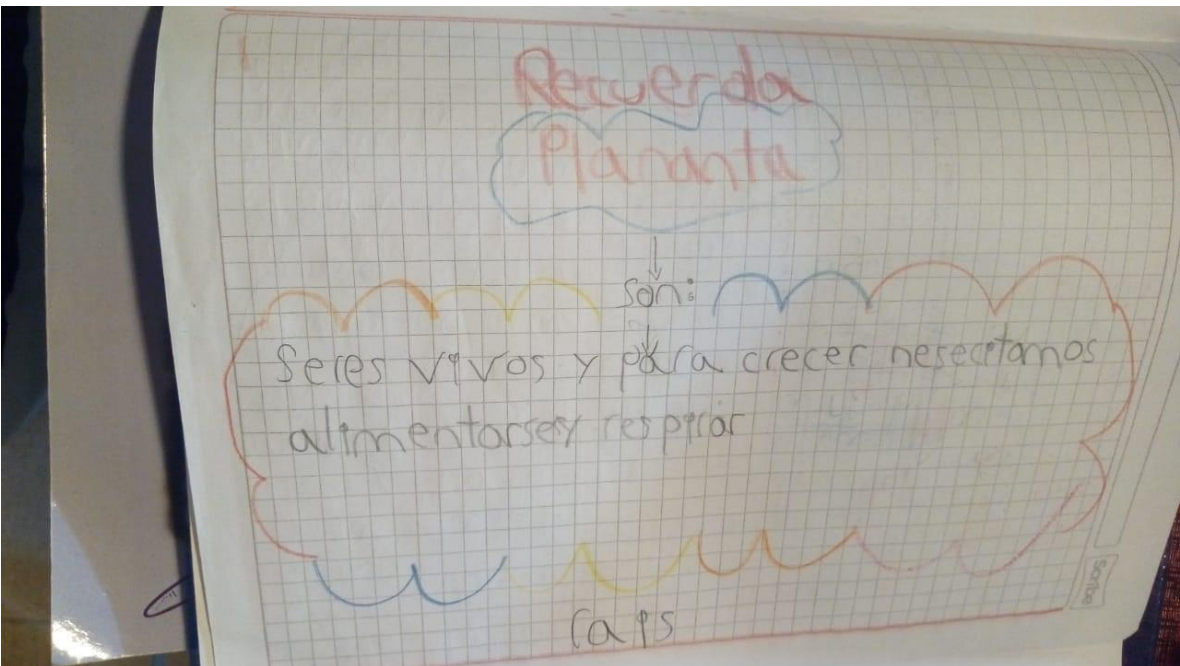 Recuerda
Plananta
son:
Seres vivos y para crecer nesecitamos
alimentarsey respirar
Caps
Scribe